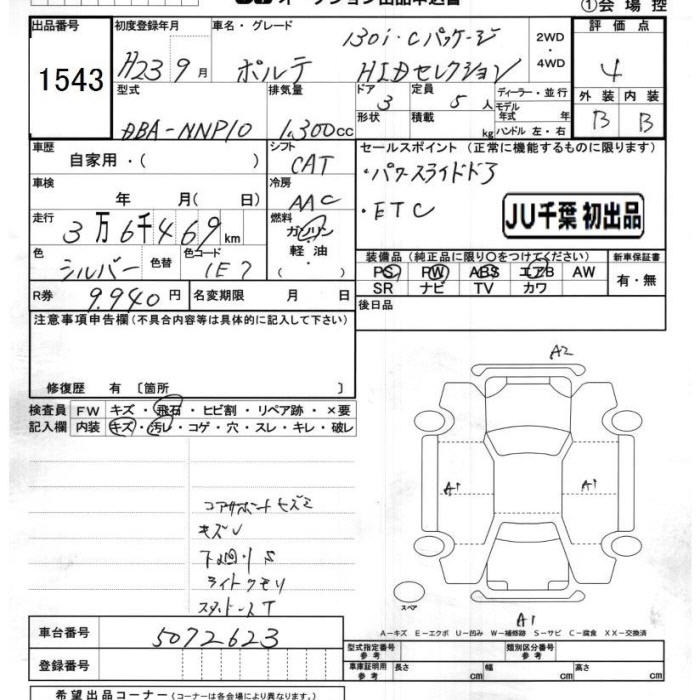 ①会 場 控
出品番号
1543
初度登録年月
H23 9 月
車名・グレード
130i・Cパッケージ
ポルテ HIDセレクション
2WD
・
4WD
評 価 点
4
外 装 内 装
B B
型式
DBA-NNP10
排気量
1,300cc
ドア
3
定員
5 人
ディーラー・並行
モデル
年式 年
形状
積載
kg
ハンドル 左・右
車歴
自家用・( )
シフト
CAT
車検
年 月( 日)
冷房
AAC
走行
3万6千469km
燃料
ガソリン
軽 油
( )
色
シルバー
色替
色コード
1E7
R券
9,940 円
名変期限 月 日
セールスポイント (正常に機能するものに限ります)
・パワースライドドア
・ETC
JU千葉 初出品
装備品 (純正品に限り○をつけてください)
PS PW ABS エアB AW
SR ナビ TV カワ
新車保証書
有・無
後日品
注意事項申告欄(不具合内容等は具体的に記入して下さい)
修復歴 有 〔箇所 〕
検査員
記入欄
FW キズ・飛石・ヒビ割・リペア跡・×要
内装 キズ・汚レ・コゲ・穴・スレ・キレ・破レ
コアサポートキズミ
キズU
下回りS
ライトクモリ
スタットレスT
A2
A1
A1
スペア
A1
A-キズ E-エクボ U-凹み W-補修跡 S-サビ C-腐食 XX-交換済
車台番号
5072623
登録番号
型式指定番号
参考
類別区分番号
参考
車庫証明用
参考
長さ cm 幅 cm 高さ cm
希望出品コーナー (コーナーは各会場により異なります。)